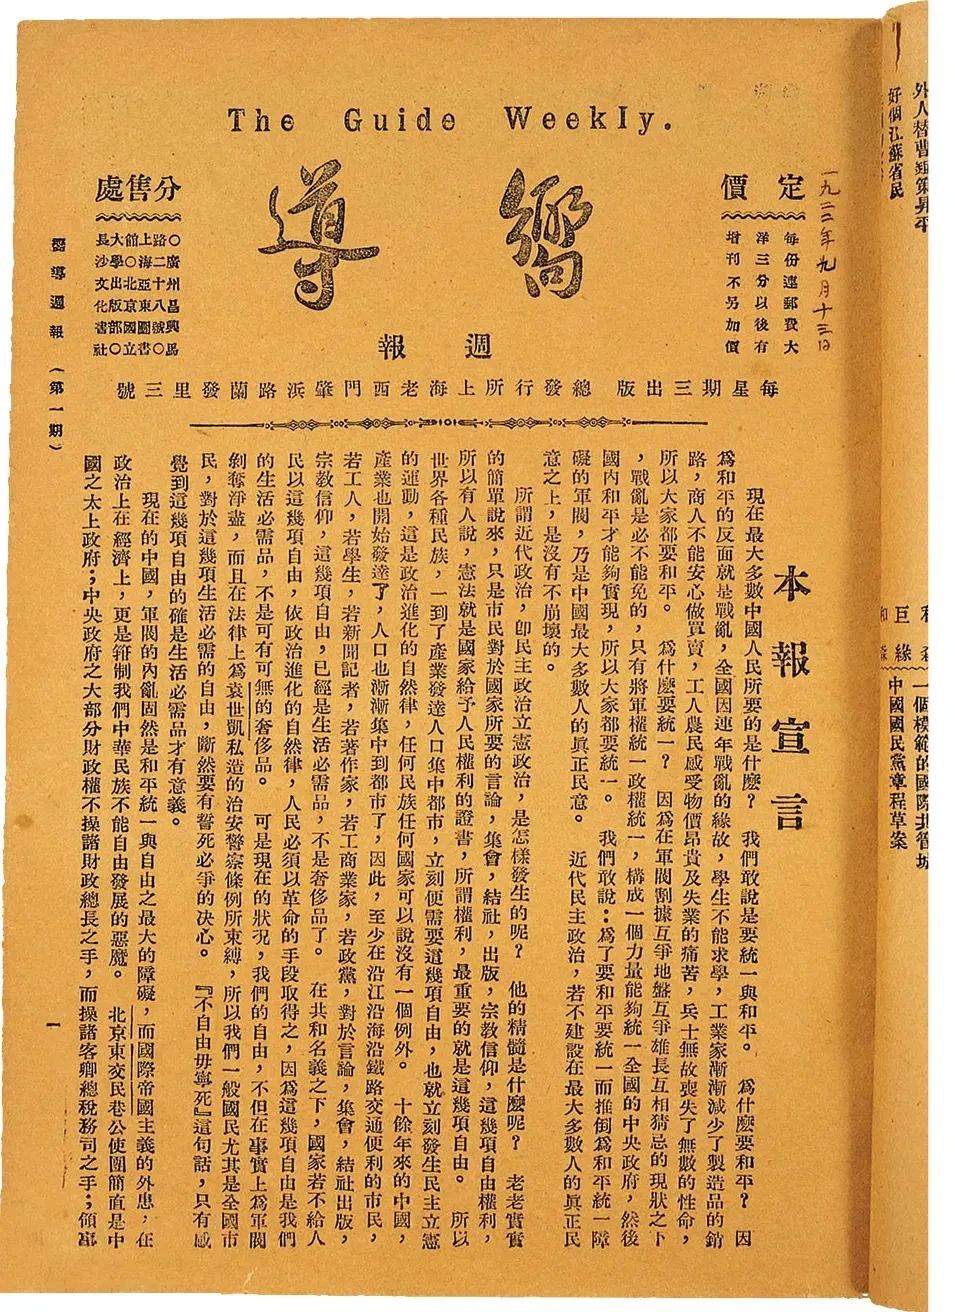 The Guide Weekly.
嚮導
週報
定價
每份連郵費大
洋三分以後有
增刊不另加價
一九二二年九月十三日
分售處
○廣州昌興馬
路二十八號○
上海亞東圖書
館○北京國立
大學出版部○
長沙文化書社
每星期三出版 總發行所上海老西門肇浜路蘭發里三號
嚮導週報 (第一期)
本報宣言
現在最大多數中國人民所要的是什麽? 我們敢說是要統一與和平。 爲什麽要和平? 因
爲和平的反面就是戰亂,全國因連年戰亂的緣故,學生不能求學,工業家漸漸減少了製造品的銷
路,商人不能安心做買賣,工人農民感受物價昂貴及失業的痛苦,兵士無故喪失了無數的性命,
所以大家都要和平。 爲什麽要統一? 因爲在軍閥割據互爭地盤互爭雄長互相猜忌的現狀之下
,戰亂是必不能免的,只有將軍權統一政權統一,構成一個力量能夠統一全國的中央政府,然後
國內和平才能夠實現,所以大家都要統一。 我們敢說:爲了要和平要統一而推倒爲和平統一障
礙的軍閥,乃是中國最大多數人的眞正民意。 近代民主政治,若不建設在最大多數人的眞正民
意之上,是沒有不崩壞的。
所謂近代政治,卽民主政治立憲政治,是怎樣發生的呢? 他的精髓是什麽呢? 老老實實
的簡單說來,只是市民對於國家所要的言論,集會,結社,出版,宗教信仰,這幾項自由權利,
所以有人說,憲法就是國家給予人民權利的證書,所謂權利,最重要的就是這幾項自由。 所以
世界各種民族,一到了產業發達人口集中都市,立刻便需要這幾項自由,也就立刻發生民主立憲
的運動,這是政治進化的自然律,任何民族任何國家可以說沒有一個例外。 十餘年來的中國,
產業也開始發達了,人口也漸漸集中到都市了,因此,至少在沿江沿海沿鐵路交通便利的市民,
若工人,若學生,若新聞記者,若著作家,若工商業家,若政黨,對於言論,集會,結社出版,
宗教信仰,這幾項自由,已經是生活必需品,不是奢侈品了。 在共和名義之下,國家若不給人
民以這幾項自由,依政治進化的自然律,人民必須以革命的手段取得之,因爲這幾項自由是我們
的生活必需品,不是可有可無的奢侈品。 可是現在的狀況,我們的自由,不但在事實上爲軍閥
剝奪淨盡,而且在法律上爲袁世凱私造的治安警察條例所束縛,所以我們一般國民尤其是全國市
民,對於這幾項生活必需的自由,斷然要有誓死必爭的決心。 『不自由毋寧死』這句話,只有感
覺到這幾項自由的確是生活必需品才有意義。
現在的中國,軍閥的內亂固然是和平統一與自由之最大的障礙,而國際帝國主義的外患,在
政治上在經濟上,更是箝制我們中華民族不能自由發展的惡魔。 北京東交民巷公使團簡直是中
國之太上政府;中央政府之大部分財政權不操諸財政總長之手,而操諸客卿總稅務司之手;領事
一
好個江蘇省民
一個模範的國際
中國國民黨章程草案